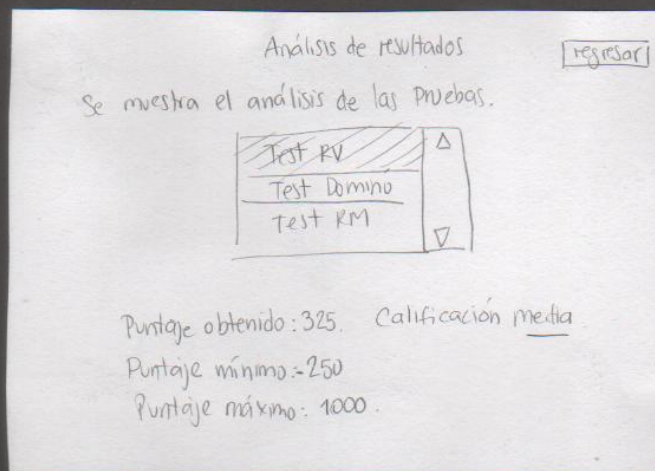 Análisis de resultados
regresar
Se muestra el análisis de las Pruebas.
Test RV
Test Domino
Test RM
Puntaje obtenido: 325. Calificación media
Puntaje mínimo:-250
Puntaje máximo: 1000.